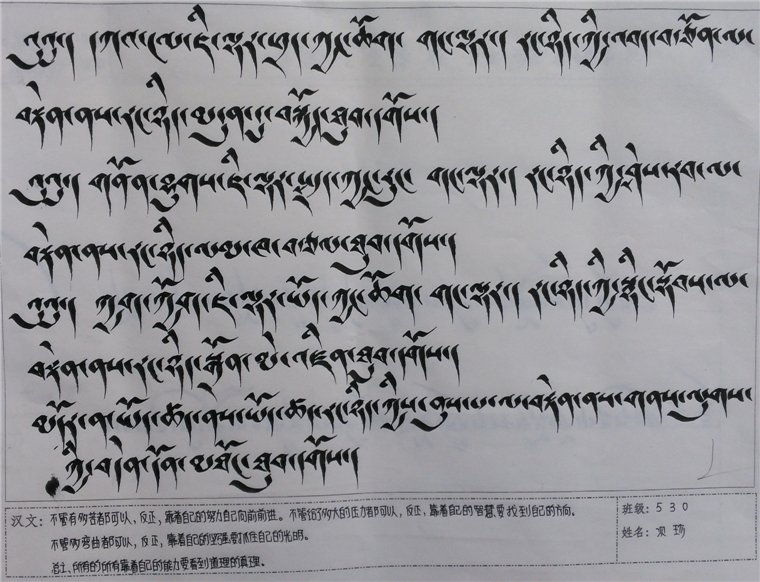 དཀའ་ལས་ཇི་ལྟར་ ཀྱང་ཆོག གང་ལྟར། རང་ཉིད་ཀྱི་འབད་བརྩོན་ལ་
བརྟེན་ནས་རང་ཉིད་མདུན་དུ་བསྐྱོད་ཐུབ་དགོས།
གནོན་ཤུགས་ཇི་ལྟར་སྤྲད་ཀྱང་རུང་ གང་ལྟར། རང་ཉིད་ཀྱི་ཤེས་རབ་ལ་
བརྟེན་ནས་རང་ཉིད་ལམ་ཁ་བཙལ་ཐུབ་དགོས།
ཀྱག་ཀྱོག་ཇི་ལྟར་ཡོད་ཀྱང་ཆོག གང་ལྟར། རང་ཉིད་ཀྱི་སྙིང་སྟོབས་ལ་
བརྟེན་ནས་རང་ཉིད་སྒྲོན་མེ་འཛིན་ཐུབ་དགོས།
མདོར་ན་ཡོད་ཚད་ནས་ཡོད་ཚད་རང་ཉིད་ཀྱི་ནུས་པ་ལ་བརྟེན་ནས་གནས་ལུགས་
ཀྱི་བདེན་དོན་མཐོང་ཐུབ་དགོས།
汉文：不管有多苦都可以，反正，靠着自己的努力自己向前前进。不管给了多大的压力都可以，反正，靠着自己的智慧要找到自己的方向。
不管多弯曲都可以，反正，靠着自己的坚强要抓住自己的光明。
总之，所有的所有靠着自己的能力要看到道理的真理。
班级：530
姓名：